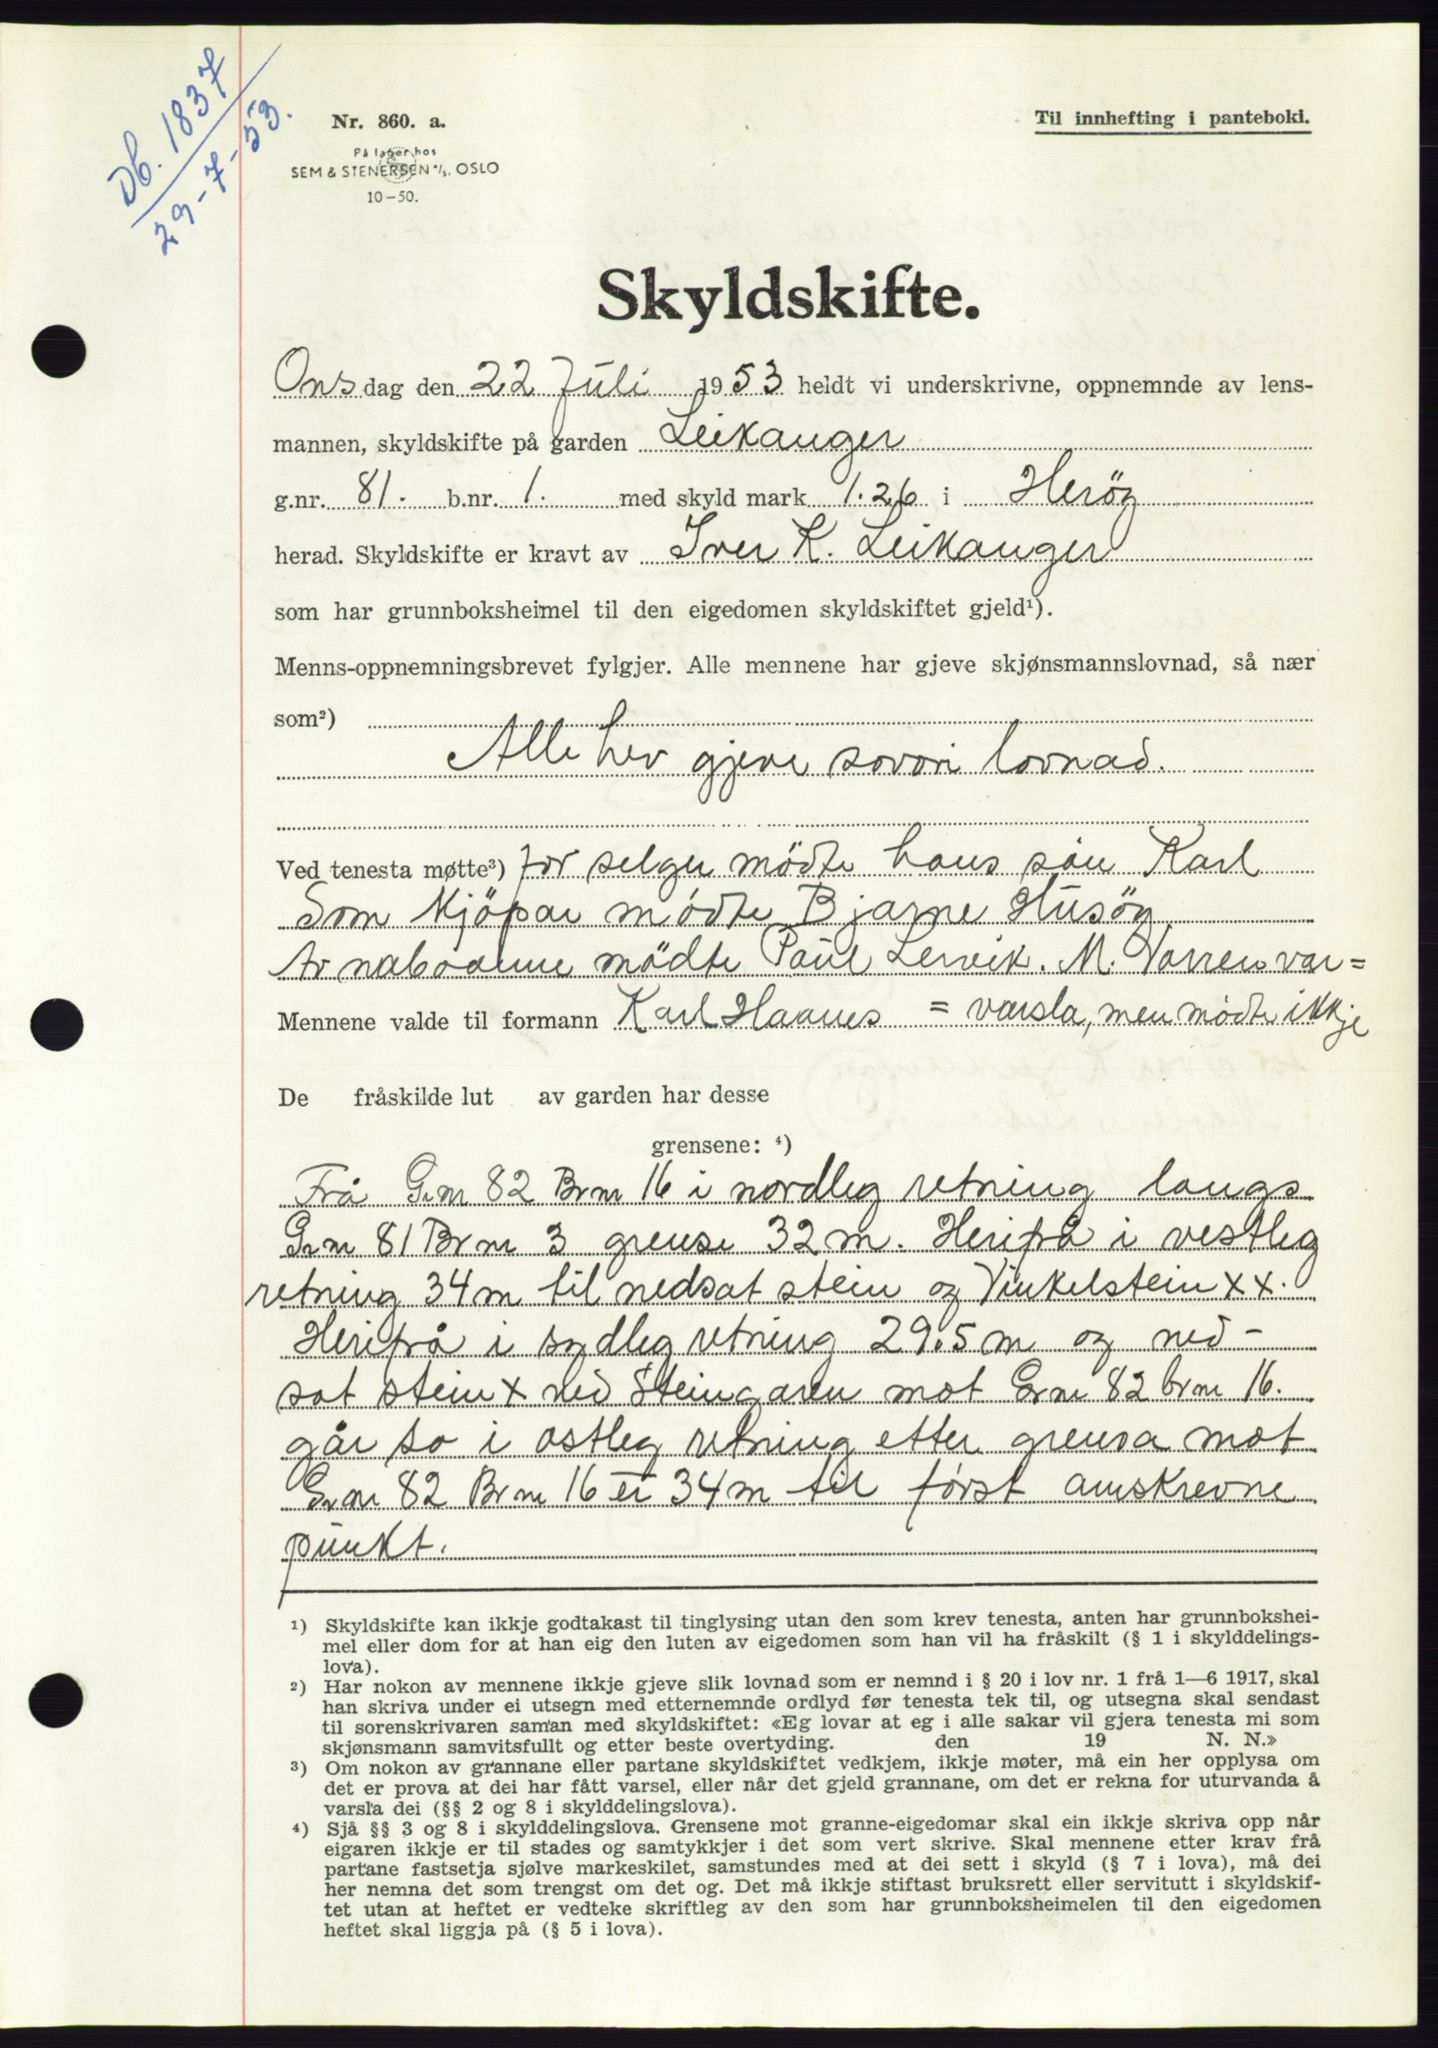 Db. 1837
29-7-53.
Nr. 860. a.
På lager hos
SEM & STENERSEN A/S. OSLO
10-50.
Til innhefting i panteboki.
Skyldskifte.
Onsdag den 22 Juli 1953 heldt vi underskrivne, oppnemnde av lens-
mannen, skyldskifte på garden Leikanger
g.nr. 81. b.nr. 1. med skyld mark 1.26 i Heröy
herad. Skyldskifte er kravt av Iver K. Leikanger
som har grunnboksheimel til den eigedomen skyldskiftet gjeld¹).
Menns-oppnemningsbrevet fylgjer. Alle mennene har gjeve skjønsmannslovnad, så nær
som²)
Alle hev gjeve sovori lovnad.
Ved tenesta møtte³) for selger mödte hans sön Karl
Som Kjöpar mødte Bjarne Husöy
Av naboanne mödte Paul Lervik. M. Vorren var=
Mennene valde til formann Karl Haanes = varsla, men mødte ikkje
De fråskilde lut av garden har desse
grensene: ⁴)
Frå Gr.nr 82 Br nr 16 i nordleg retning langs
Gr.nr 81 Br nr 3 grense 32 m. Herifrå i vestleg
retning 34 m til nedsat stein og Vinkelstein xx.
Herifrå i sydleg retning 29.5 m og ned-
sat stein x ned Steingaren mot Gr nr 82 br nr 16.
går so i ostleg retning etter grensa mot
Gr.nr 82 Br nr 16 er 34 m til først omskrevne
punkt.
¹) Skyldskifte kan ikkje godtakast til tinglysing utan den som krev tenesta, anten har grunnbokshei-
mel eller dom for at han eig den luten av eigedomen som han vil ha fråskilt (§ 1 i skylddelings-
lova).
²) Har nokon av mennene ikkje gjeve slik lovnad som er nemnd i § 20 i lov nr. 1 frå 1—6 1917, skal
han skriva under ei utsegn med etternemnde ordlyd før tenesta tek til, og utsegna skal sendast
til sorenskrivaren saman med skyldskiftet: «Eg lovar at eg i alle sakar vil gjera tenesta mi som
skjønsmann samvitsfullt og etter beste overtyding. den 19 N. N.»
³) Om nokon av grannane eller partane skyldskiftet vedkjem, ikkje møter, må ein her opplysa om
det er prova at dei har fått varsel, eller når det gjeld grannane, om det er rekna for uturvanda å
varsla dei (§§ 2 og 8 i skylddelingslova).
⁴) Sjå §§ 3 og 8 i skylddelingslova. Grensene mot granne-eigedomar skal ein ikkje skriva opp når
eigaren ikkje er til stades og samtykkjer i det som vert skrive. Skal mennene etter krav frå
partane fastsetja sjølve markeskilet, samstundes med at dei sett i skyld (§ 7 i lova), må dei
her nemna det som trengst om det og. Det må ikkje stiftast bruksrett eller servitutt i skyldskif-
tet utan at heftet er vedteke skriftleg av den som har grunnboksheimelen til den eigedomen
heftet skal liggja på (§ 5 i lova).